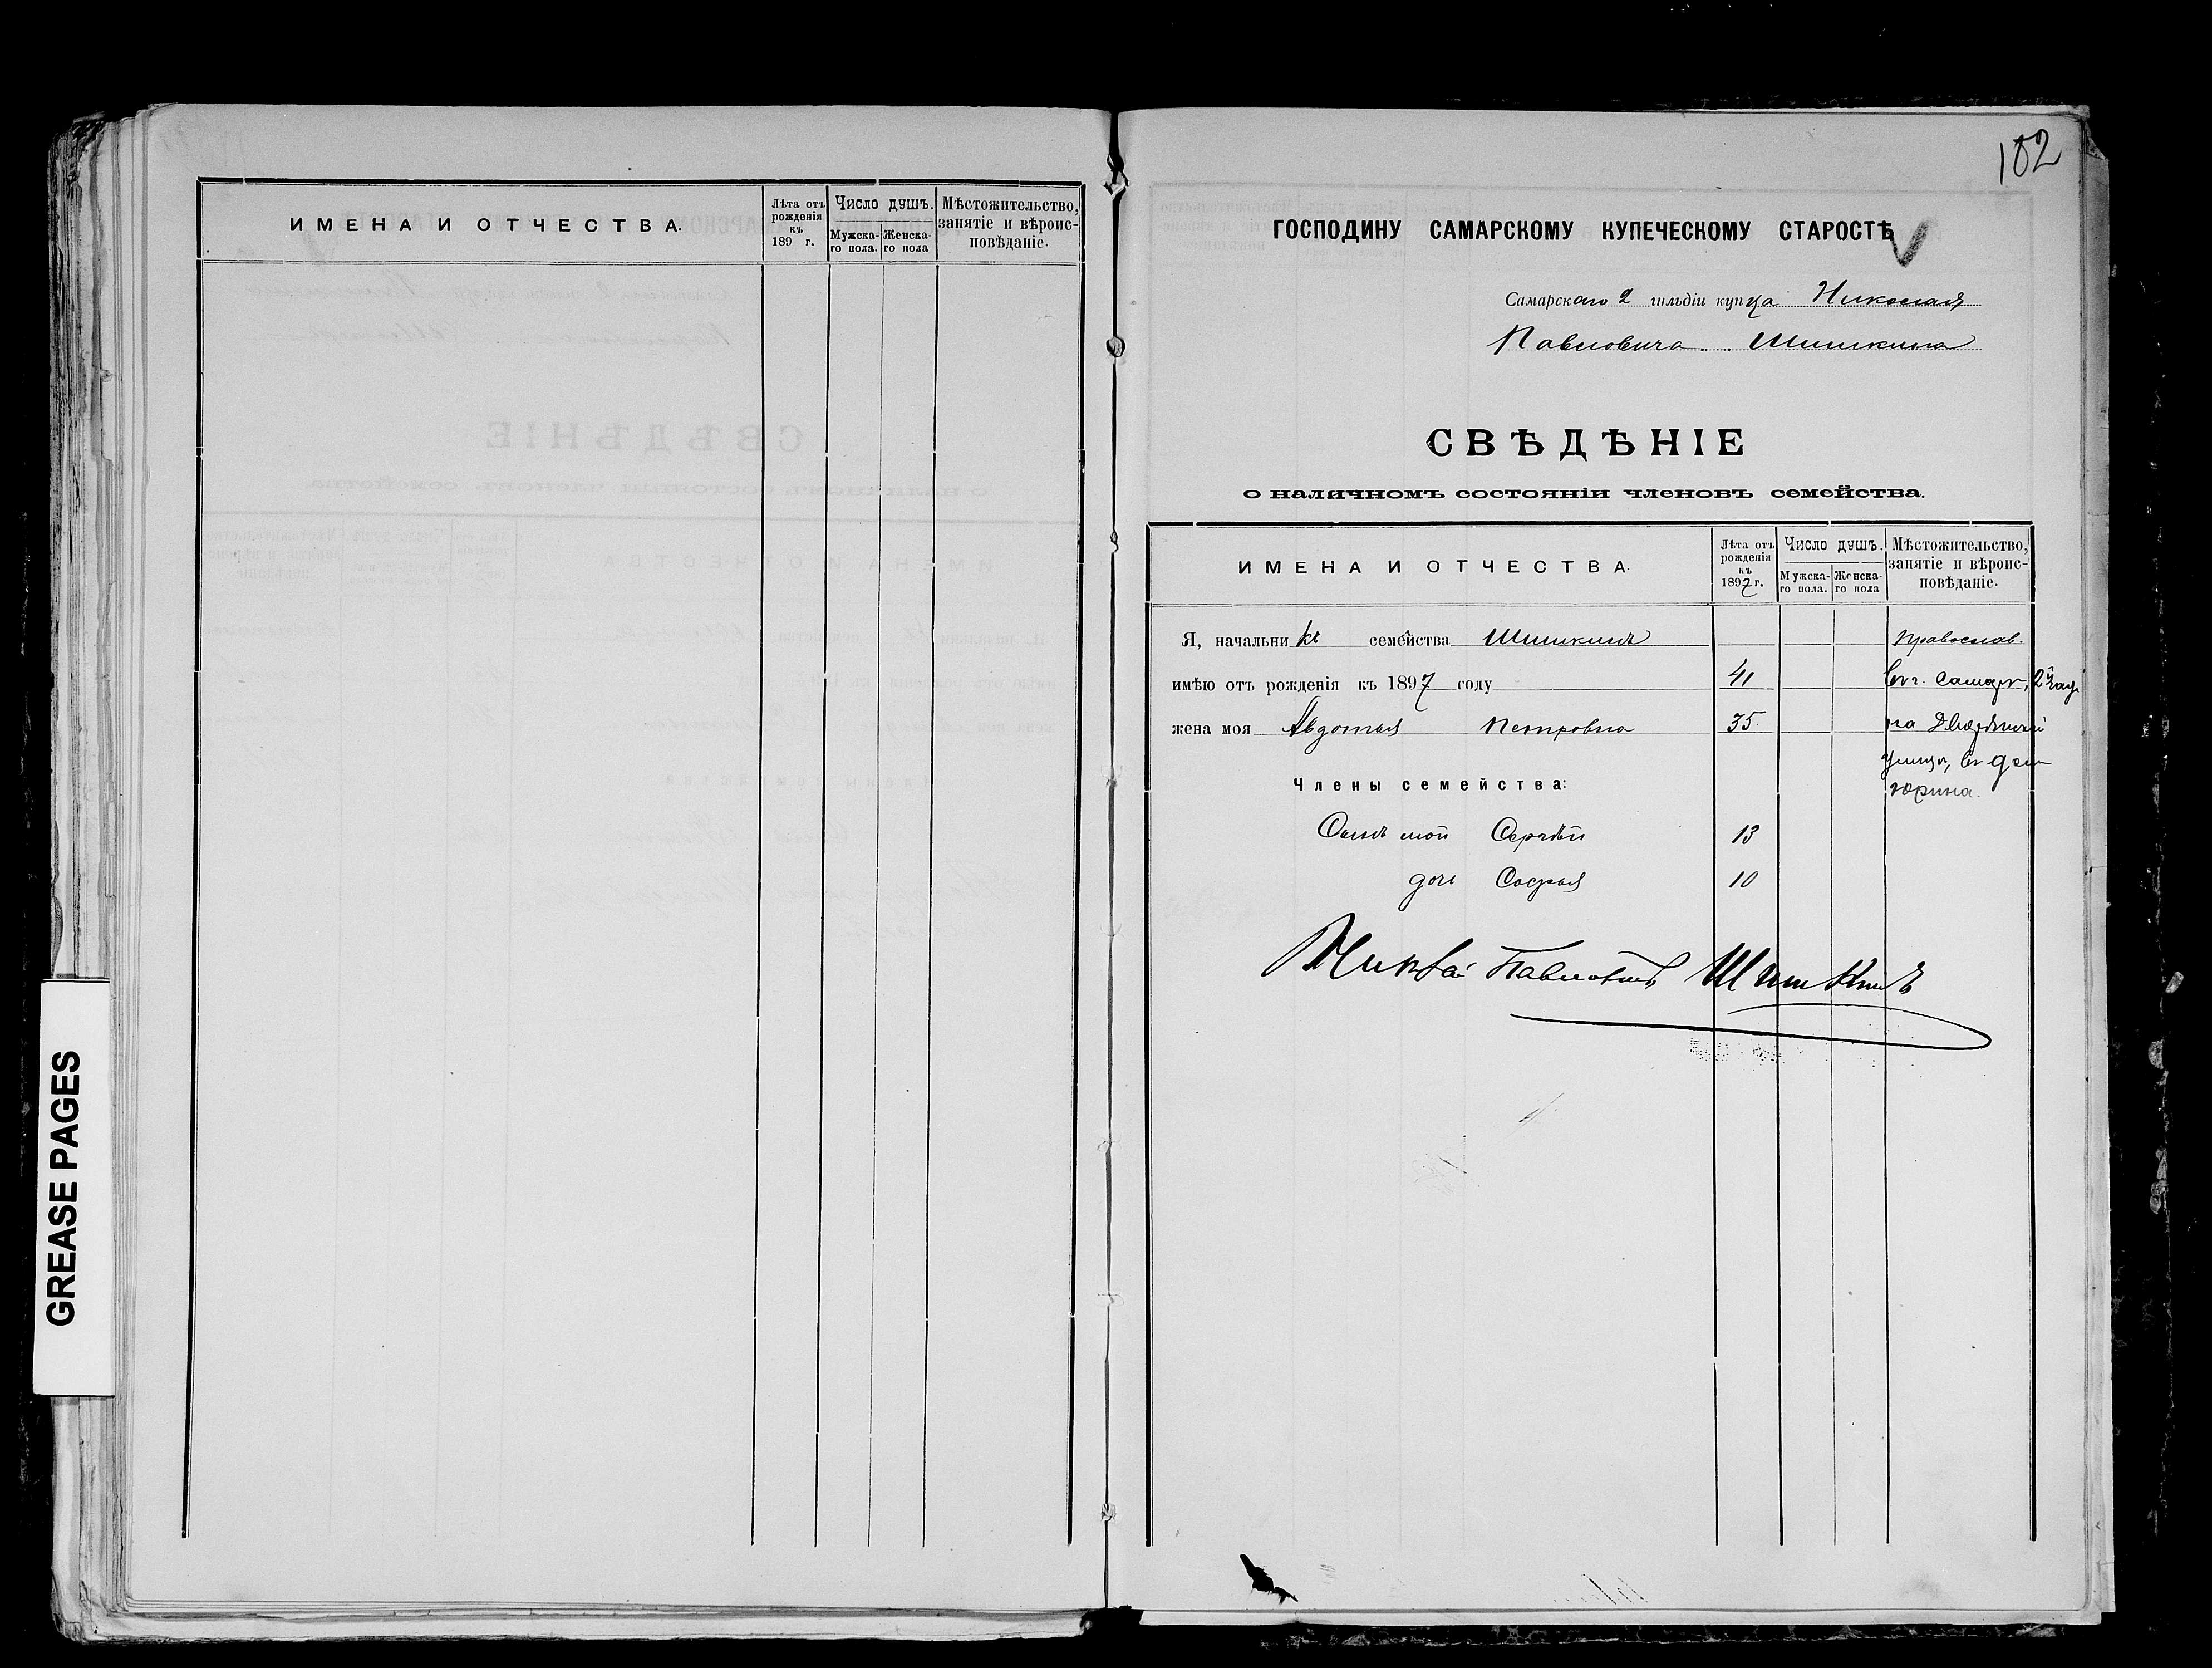 ИМЕНА И ОТЧЕСТВА.
Лѣта отъ рожденія къ 189 г.
Число душъ.
Мужска-го пола.
Женска-го пола
Мѣстожительство, занятіе и вѣроис-повѣданіе.
GREASE PAGES
102
ГОСПОДИНУ САМАРСКОМУ КУПЕЧЕСКОМУ СТАРОСТѢ
Самарскаго 2 гильдіи купца Николая
Павловича Шишкина
СВѢДѢНІЕ
о наличномъ состояніи членовъ семейства.
ИМЕНА И ОТЧЕСТВА.
Лѣта отъ рожденія къ 1897 г.
Число душъ.
Мужска-го пола.
Женска-го пола
Мѣстожительство, занятіе и вѣроис-повѣданіе.
Я, начальникъ семейства Шишкинъ Православ.
имѣю отъ рожденія къ 1897 году 41 въ г. Самарѣ, 2й час.
жена моя Авдотья Петровна 35 на Дворянской
улицѣ, въ домѣ
Юрина.
Члены семейства:
Сынъ мой Сергѣй 13
дочь Софья 10
Николай Павловичъ Шишкинъ